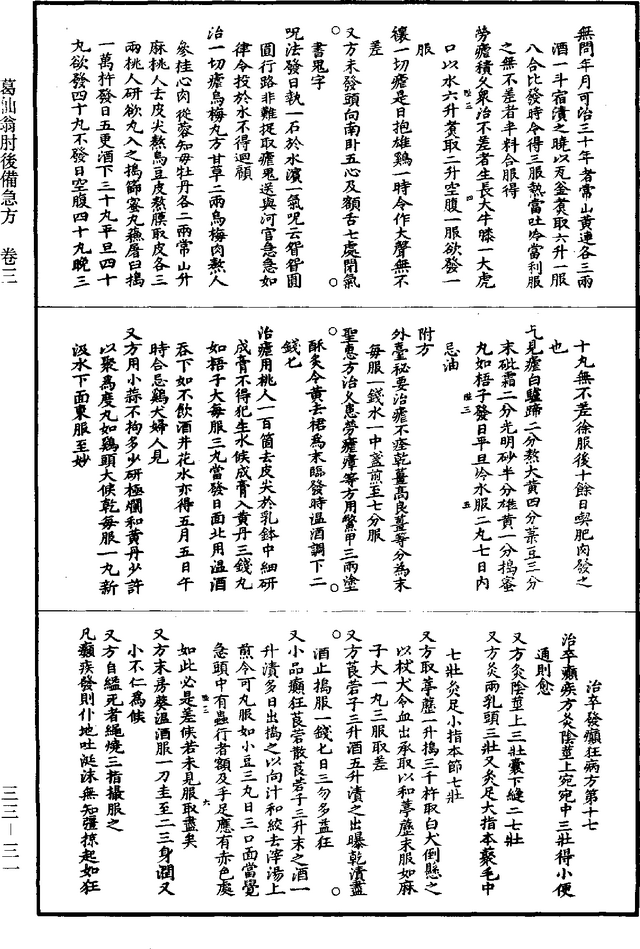 葛仙翁肘後備急方 卷三
三三—三一
無問年月可治三十年者常山黃連各三兩
酒一斗宿漬之曉以瓦釜煑取六升一服
八合比發時令得三服熱當吐冷當利服
之無不差者半料合服得
勞瘧積久衆治不差者生長大牛膝一大虎
口以水六升煑取二升空腹一服欲發一
服
禳一切瘧是日抱雄鷄一時令作大聲無不
差
又方未發頭向南卧五心及額舌七處閉氣
書鬼字
呪法發日執一石於水濱一氣呪云眢眢圓
圓行路非難捉取瘧鬼送與河官急急如
律令投於水不得廻顧
治一切瘧烏梅丸方甘草二兩烏梅肉熬人
參桂心肉從蓉知母牡丹各二兩常山升
麻桃人去皮尖熬烏豆皮熬膜取皮各三
兩桃人研欲丸入之搗篩蜜丸蘇屠臼搗
一萬杵發日五更酒下三十丸平旦四十
丸欲發四十丸不發日空腹四十丸晚三
十丸無不差徐服後十餘日喫肥肉發之
也
凡見瘧白驢蹄二分熬大黃四分菉豆三分
末砒霜二分光明砂半分雄黃一分搗蜜
丸如梧子發日平旦冷水服二丸七日內
忌油
附方
外臺秘要治瘧不痊乾薑高良薑等分為末
每服一錢水一中盞煎至七分服
聖惠方治久患勞瘧瘴等方用鱉甲三兩塗
酥炙令黃去裙為末臨發時温酒調下二
錢匕
治瘧用桃人一百箇去皮尖於乳鉢中細研
成膏不得犯生水候成膏入黃丹三錢丸
如梧子大每服三丸當發日面北用温酒
吞下如不飲酒井花水亦得五月五日午
時合忌鷄犬婦人見
又方用小蒜不拘多少研極爛和黃丹少許
以聚為度丸如鷄頭大候乾每服一丸新
汲水下面東服至妙
治卒發癲狂病方第十七
治卒癲疾方灸陰莖上宛宛中三壯得小便
通則愈
又方灸陰莖上三壯囊下縫二七壯
又方灸兩乳頭三壯又灸足大指本藂毛中
七壯灸足小指本節七壯
又方取葶藶一升搗三千杵取白犬倒懸之
以杖犬令血出承取以和葶藶末服如麻
子大一丸三服取差
又方莨菪子三升酒五升漬之出曝乾漬盡
酒止搗服一錢匕日三勿多益狂
又小品癲狂莨菪散莨菪子三升末之酒一
升漬多日出搗之以向汁和絞去滓湯上
煎令可丸服如小豆三丸日三口面當覺
急頭中有蟲行者額及手足應有赤色處
如此必是差候若未見服取盡矣
又方末房葵温酒服一刀圭至二三身潤又
小不仁為候
又方自縊死者繩燒三指撮服之
凡癲疾發則仆地吐涎沫無知彊掠起如狂